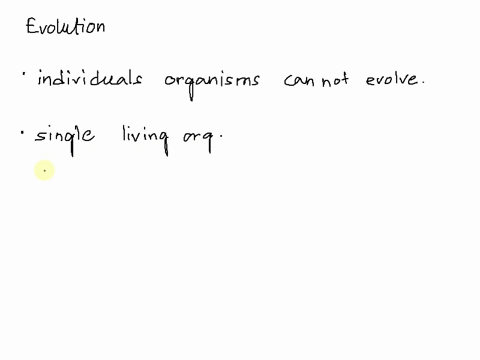 Evolution
· individuals organisms can not evolve.
· single living org.